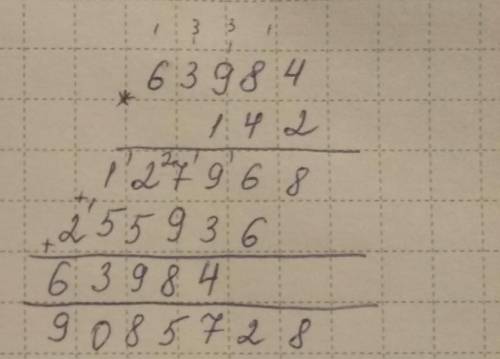 1 3 3 1
1
63984
*
142
1 1 2 2 7 1 9 1 6 8
+ 1
255936
+
63984
9085728